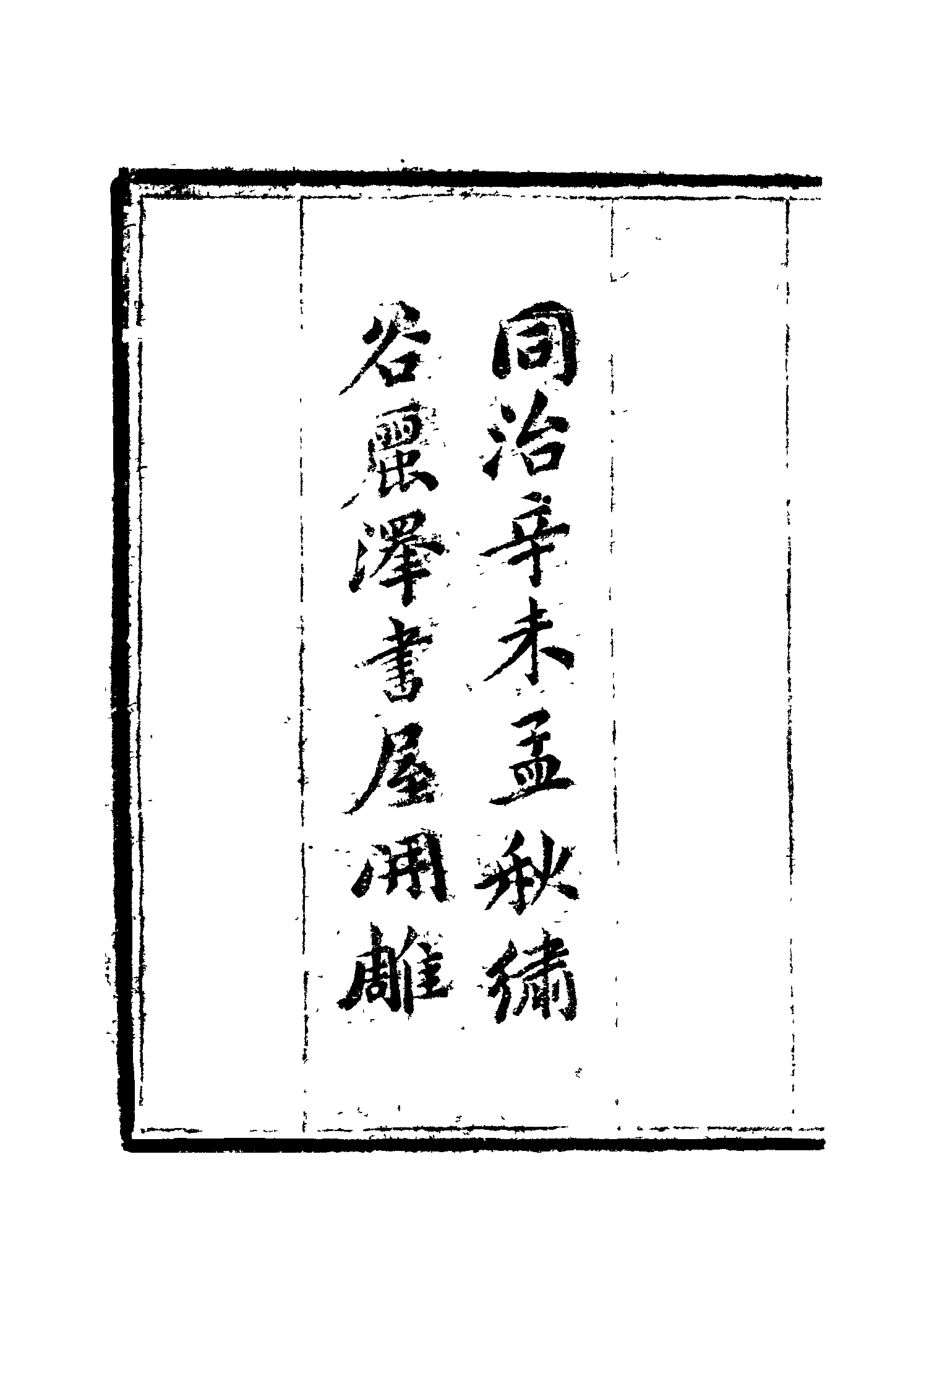 同治辛未孟秋繡
谷麗澤書屋開雕